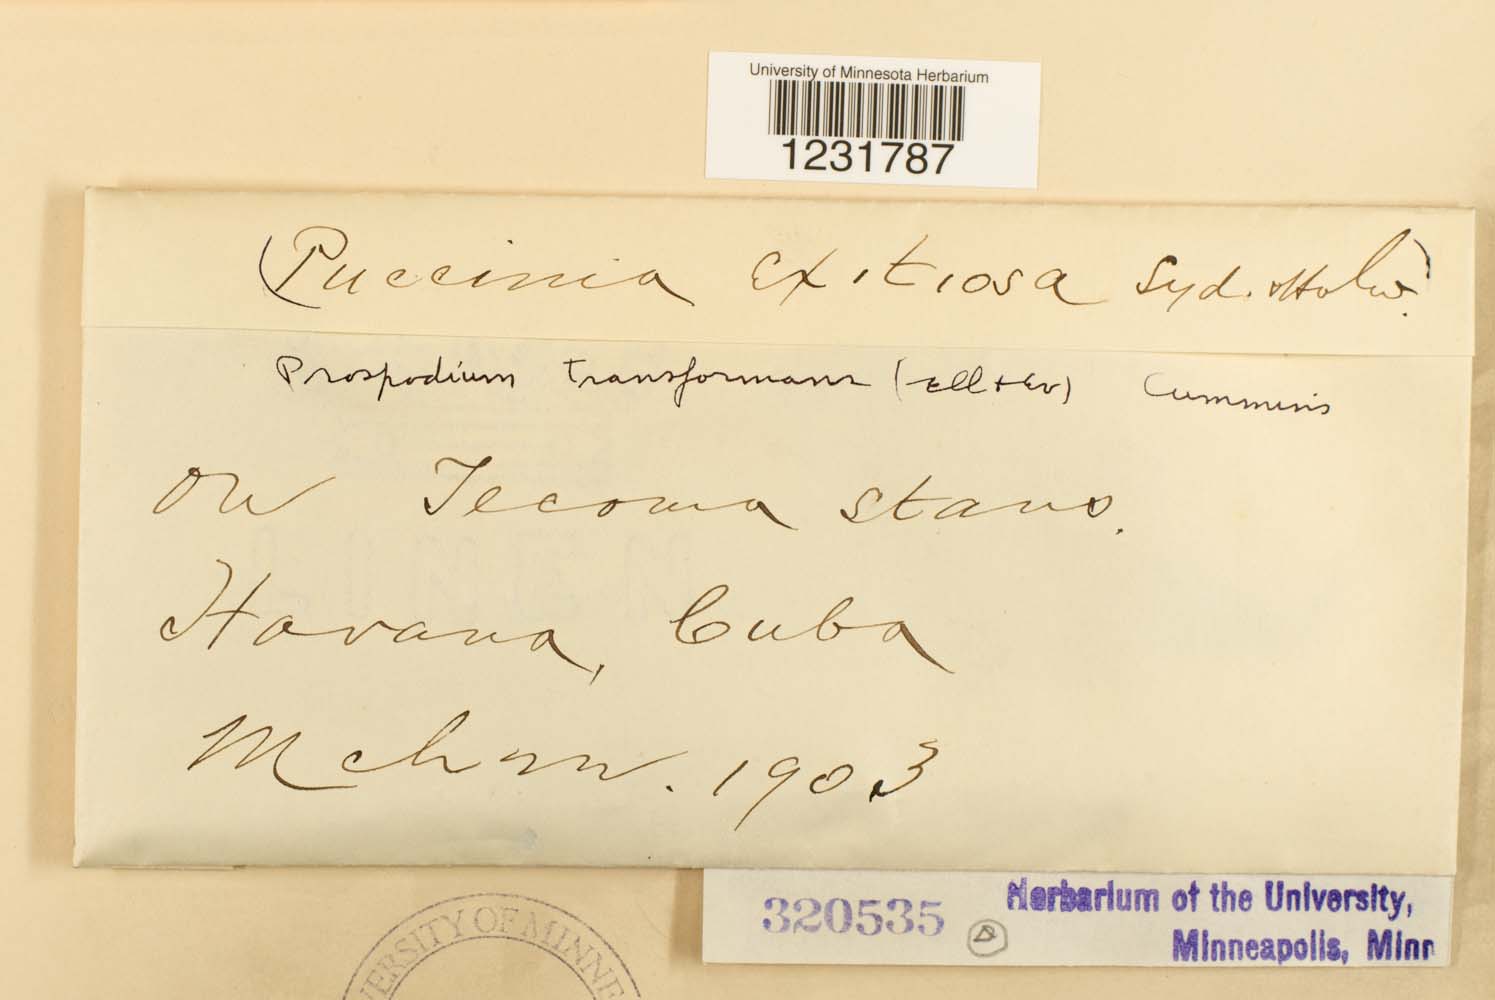 University of Minnesota Herbarium
1231787
(Puccinia exitiosa Syd. & Holw.)
Prospodium transformans (Ell + Ev) Cummins
on Tecoma stans.
Havana, Cuba
1903
320535
Herbarium of the University,
Minneapolis, Minn
VERSITY OF MINNE